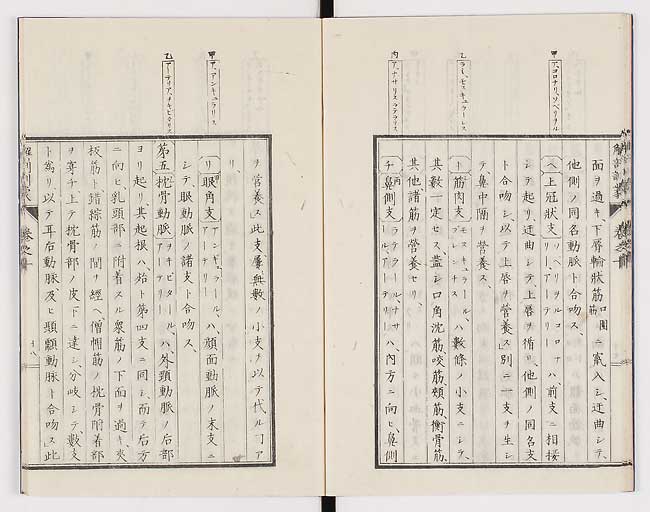 甲 ア、コロナリ、ソペリヲル
乙 ラモー、モスキュラーレス
丙 ア、ナサリスラテラリス
面ヲ過キ、下唇輪狀筋 口圍筋 ニ竄入シ、迂曲シテ、
他側ノ同名動脈ト合吻ス、
ヘ上冠狀支 ソペリヲルコロナリー、アーテリー ハ前支ニ相接
シテ起リ迂曲シテ、上唇ヲ循リ、他側ノ同名支
ト合吻シ、以テ上唇ヲ營養ス」別ニ一支ヲ生シ
テ、鼻中隔ヲ營養ス、
ト筋肉支 モスキュラール、ブレンチス ハ數條ノ小支ニシテ、
其數一定セス、蓋シ口角沈筋、咬筋、頰筋、衡骨筋、
其他諸筋ヲ營養セリ、
チ鼻側支 ラテラール、ナサール、アーテリー ハ、内方ニ向ヒ、鼻側
解剖訓蒙 卷之十
甲 ア、アンギュラリス
乙 アーテリア、ヲキピタリス
ヲ營養ス」此支、屢無數ノ小支ヲ以テ代ルヿア
リ、
リ眼角支 アンギュラール、アーテリー ハ、顏面動脈ノ末支ニ
シテ、眼動脈ノ諸支ト合吻ス、
第五枕骨動脈 ヲキピタール、アーテリー ハ、外頸動脈ノ后部
ヨリ起リ、其起根ハ、殆ト第四支ニ同シ、而テ后方
ニ向ヒ乳頭部ニ附着スル衆筋ノ下面ヲ過キ、夾
板筋ト錯綜筋ノ間ヲ經ヘ、僧帽筋ノ枕骨附着部
ヲ穿チ上テ枕骨部ノ皮下ニ達シ、分岐シテ、數支
ト爲リ以テ耳后動脈、及ヒ顳顬動脈ト合吻ス」此
卷之十
十八